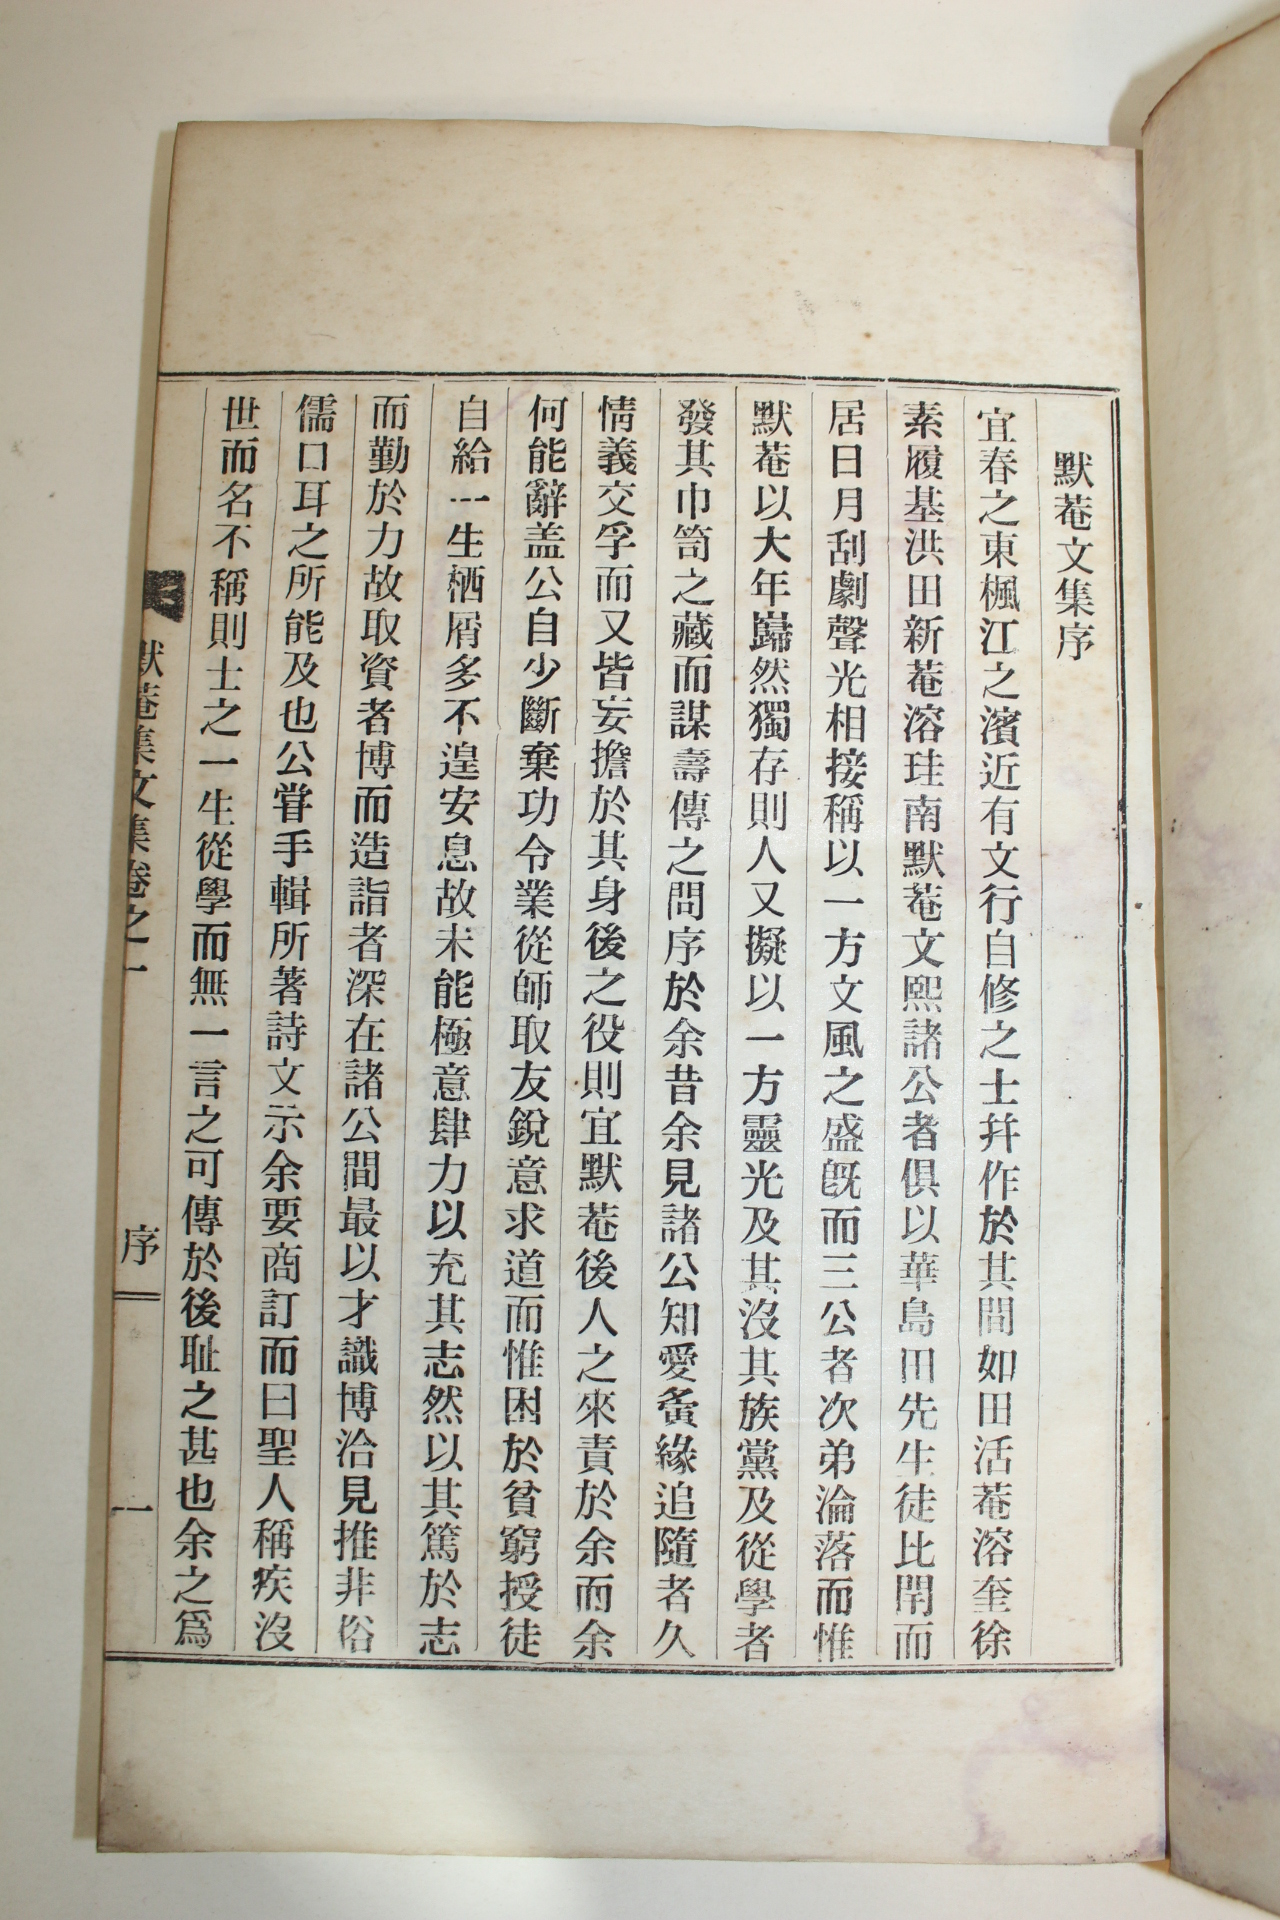 默菴文集序
宜春之東楓江之濱近有文行自修之士幷作於其間如田活菴溶奎徐
素履基洪田新菴溶珪南默菴文熙諸公者俱以華島田先生徒比閈而
居日月刮劘聲光相接稱以一方文風之盛旣而三公者次弟淪落而惟
默菴以大年巋然獨存則人又擬以一方靈光及其沒其族黨及從學者
發其巾笥之藏而謀壽傳之問序於余昔余見諸公知愛夤緣追隨者久
情義交孚而又皆妄擔於其身後之役則宜默菴後人之來責於余而余
何能辭盖公自少斷棄功令業從師取友銳意求道而惟困於貧窮授徒
自給一生栖屑多不遑安息故未能極意肆力以充其志然以其篤於志
而勤於力故取資者博而造詣者深在諸公間最以才識博洽見推非俗
儒口耳之所能及也公甞手輯所著詩文示余要商訂而曰聖人稱疾沒
世而名不稱則士之一生從學而無一言之可傳於後耻之甚也余之爲
默菴集文集卷之一
序
一